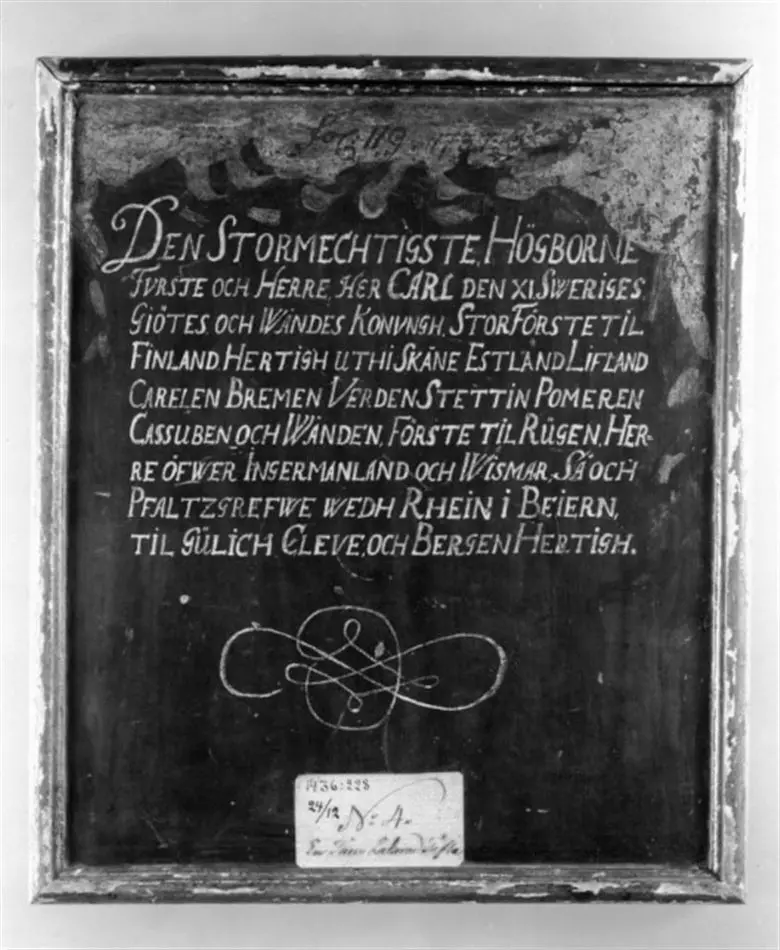 No 119
DEN STORMECHTIGSTE, HÖGBORNE
FVRSTE OCH HERRE, HER CARL DEN XI. SWERIGES
GIÖTES OCH WÄNDES KONVNGH, STORFÖRSTE TIL
FINLAND, HERTIGH UTHI SKÅNE ESTLAND LIFLAND
CARELEN BREMEN VERDEN STETTIN POMEREN
CASSUBEN OCH WÄNDEN, FÖRSTE TIL RÜGEN, HER-
RE ÖFWER INGERMANLAND OCH WISMAR, SÅ OCH
PFALTZGREFWE WEDH RHEIN I BEIERN,
TIL GÜLICH CLEVE, OCH BERGEN HERTIGH.
1436:228
24/12
No 4.